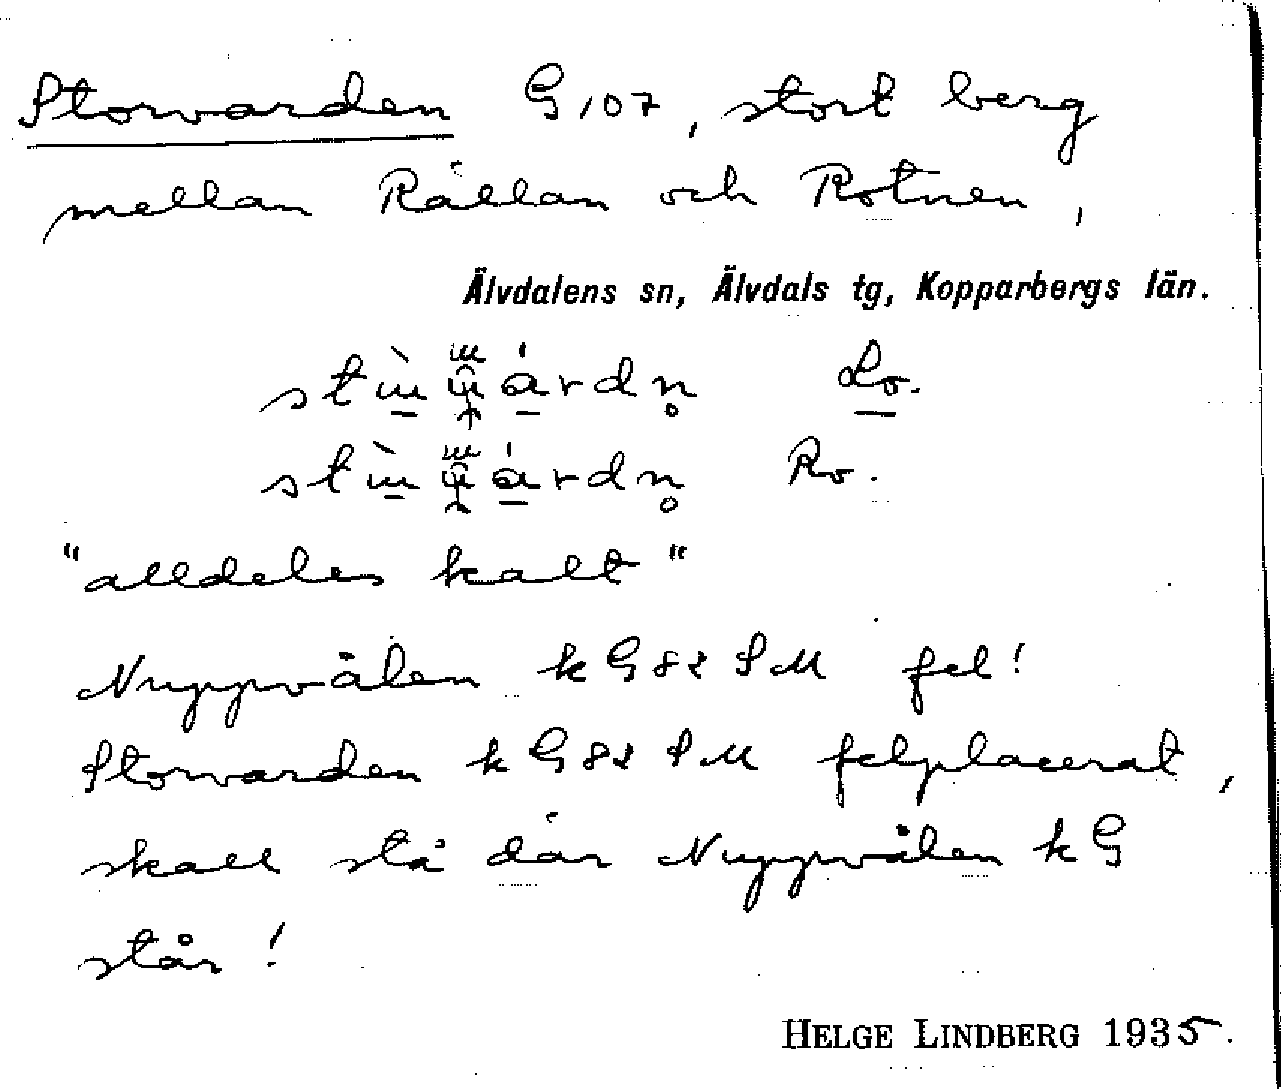 Storvarden G 107, stort berg
mellan Rällan och Rotnen,
Älvdalens sn, Älvdals tg, Kopparbergs län.
Lo.
Ro.
"alldeles kalt"
Nuppvålen k G 82 SM fel!
Storvarden k G 82 SM felplacerat,
skall stå där Nuppvålen k G
står!
HELGE LINDBERG 1935.